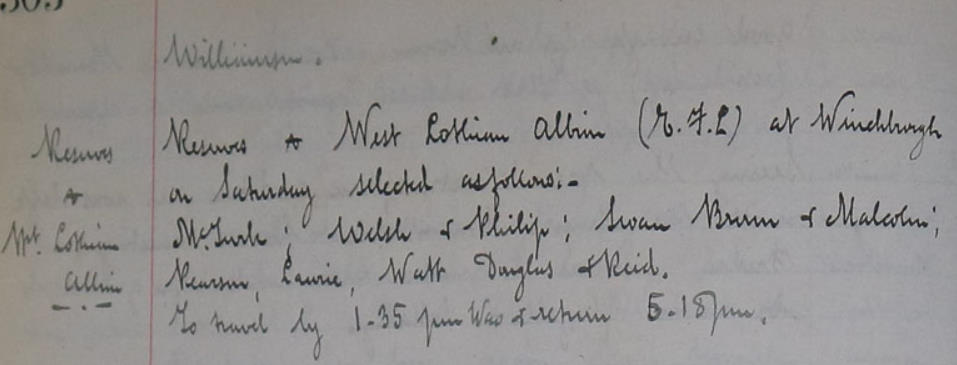 303
Williamson.
Reserves
v
Wst. Lothian
Albion
Reserves v West Lothian Albion (E.F.L) at Winchburgh
on Saturday selected as follows:-
McTurk; Welsh & Philip; Swan Brown & Malcolm;
Pearson, Lawrie, Watt Douglas & Reid.
To travel by 1-35 pm & return 5-18 pm.